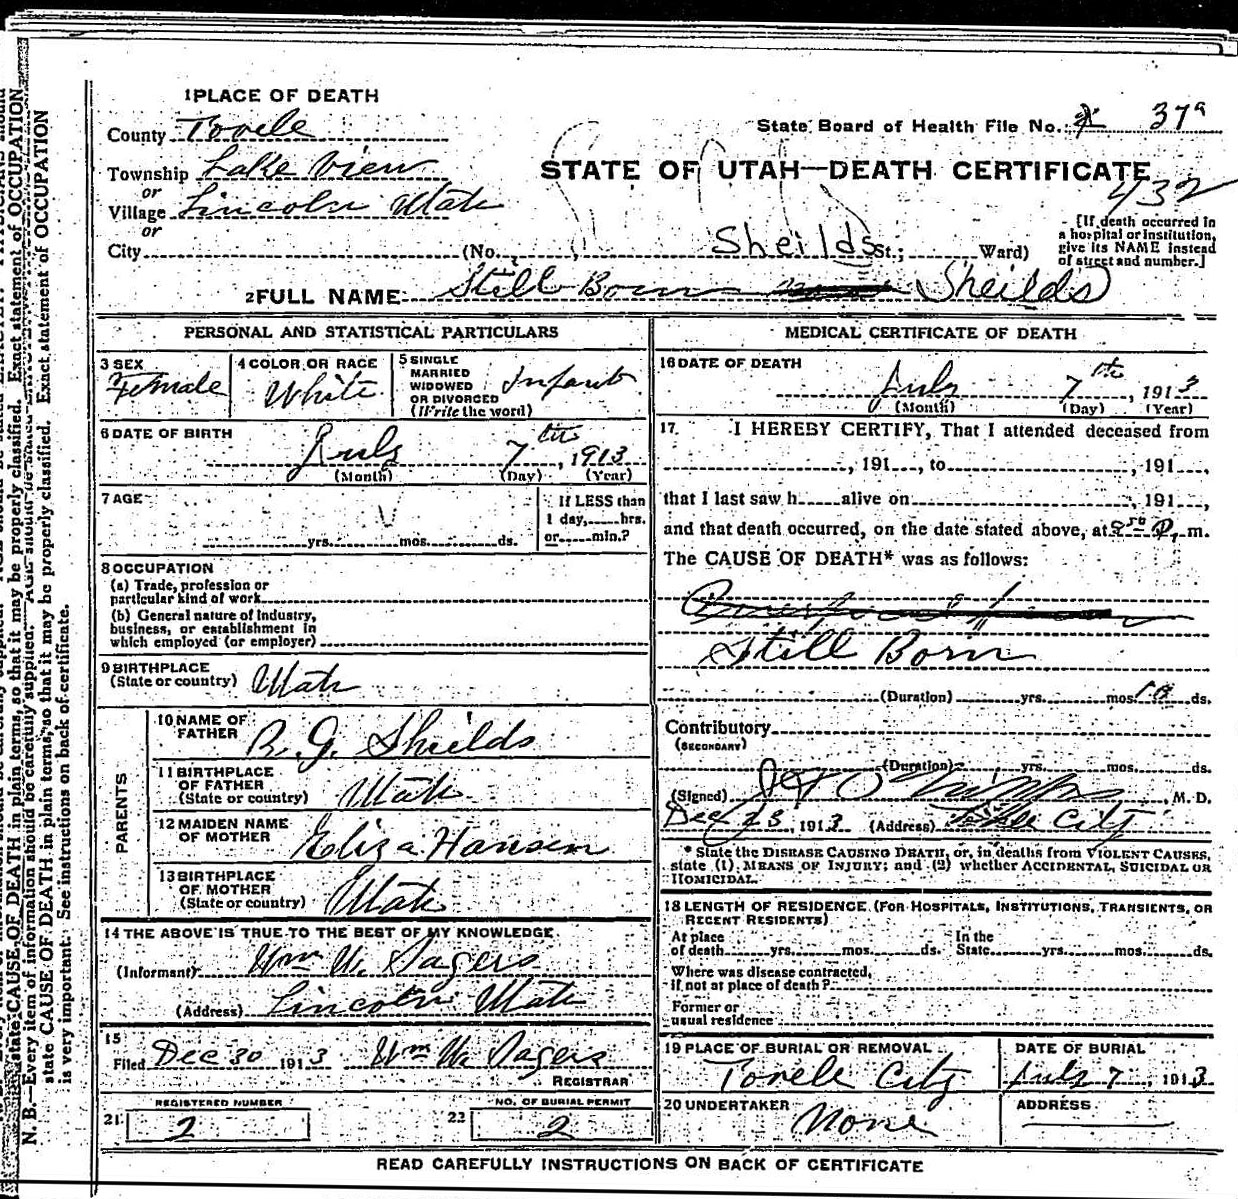 1 PLACE OF DEATH
County Tooele
State Board of Health File No. 37a
Township Lake View
STATE OF UTAH—DEATH CERTIFICATE
432
or
Village Lincoln Utah
or
City (No. Sheilds St.; Ward)
[If death occurred in a hospital or institution, give its NAME instead of street and number.]
2 FULL NAME Still Born Sheilds
PERSONAL AND STATISTICAL PARTICULARS
3 SEX
Female
4 COLOR OR RACE
White
5 SINGLE
MARRIED
WIDOWED
OR DIVORCED
(Write the word)
Infant
6 DATE OF BIRTH
July 7th, 1913
(Month) (Day) (Year)
7 AGE
yrs. mos. ds.
If LESS than
1 day, hrs.
or min.?
8 OCCUPATION
(a) Trade, profession or
particular kind of work
(b) General nature of industry,
business, or establishment in
which employed (or employer)
9 BIRTHPLACE
(State or country) Utah
PARENTS
10 NAME OF
FATHER R. G. Shields
11 BIRTHPLACE
OF FATHER
(State or country) Utah
12 MAIDEN NAME
OF MOTHER Eliza Hansen
13 BIRTHPLACE
OF MOTHER
(State or country) Utah
14 THE ABOVE IS TRUE TO THE BEST OF MY KNOWLEDGE
(Informant) Wm W. Sagers
(Address) Lincoln Utah
15
Filed Dec 30 1913 Wm W. Sagers
REGISTRAR
REGISTERED NUMBER
21 2
NO. OF BURIAL PERMIT
22 2
MEDICAL CERTIFICATE OF DEATH
16 DATE OF DEATH
July 7th, 1913
(Month) (Day) (Year)
17 I HEREBY CERTIFY, That I attended deceased from
, 191 , to , 191 ,
that I last saw h alive on , 191 ,
and that death occurred, on the date stated above, at m.
The CAUSE OF DEATH* was as follows:
Still Born
(Duration) yrs. mos. 10 ds.
Contributory
(SECONDARY)
(Duration) yrs. mos. ds.
(Signed) , M. D.
Dec 23, 1913 (Address) City
* State the DISEASE CAUSING DEATH, or, in deaths from VIOLENT CAUSES,
state (1) MEANS OF INJURY; and (2) whether ACCIDENTAL, SUICIDAL OR
HOMICIDAL.
18 LENGTH OF RESIDENCE (FOR HOSPITALS, INSTITUTIONS, TRANSIENTS, OR
RECENT RESIDENTS)
At place
of death yrs. mos. ds.
In the
State yrs. mos. ds.
Where was disease contracted,
if not at place of death?
Former or
usual residence
19 PLACE OF BURIAL OR REMOVAL
Tooele City
DATE OF BURIAL
July 7, 1913
20 UNDERTAKER
None
ADDRESS
READ CAREFULLY INSTRUCTIONS ON BACK OF CERTIFICATE
N. B.—Every item of information should be carefully supplied.
state CAUSE OF DEATH in plain terms, so that it may be properly classified. Exact statement of OCCUPATION
is very important. See instructions on back of certificate.